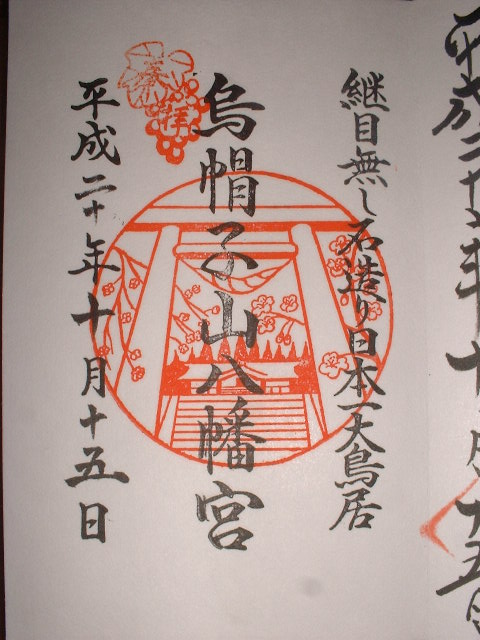 継目無し石造り日本一大鳥居
烏帽子山八幡宮
平成二十年十月十五日